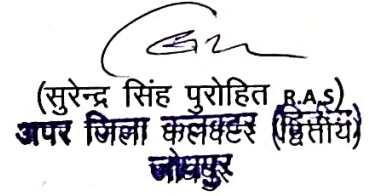 (सुरेन्द्र सिंह पुरोहित R.A.S)
अपर जिला कलक्टर (द्वितीय)
जोधपुर